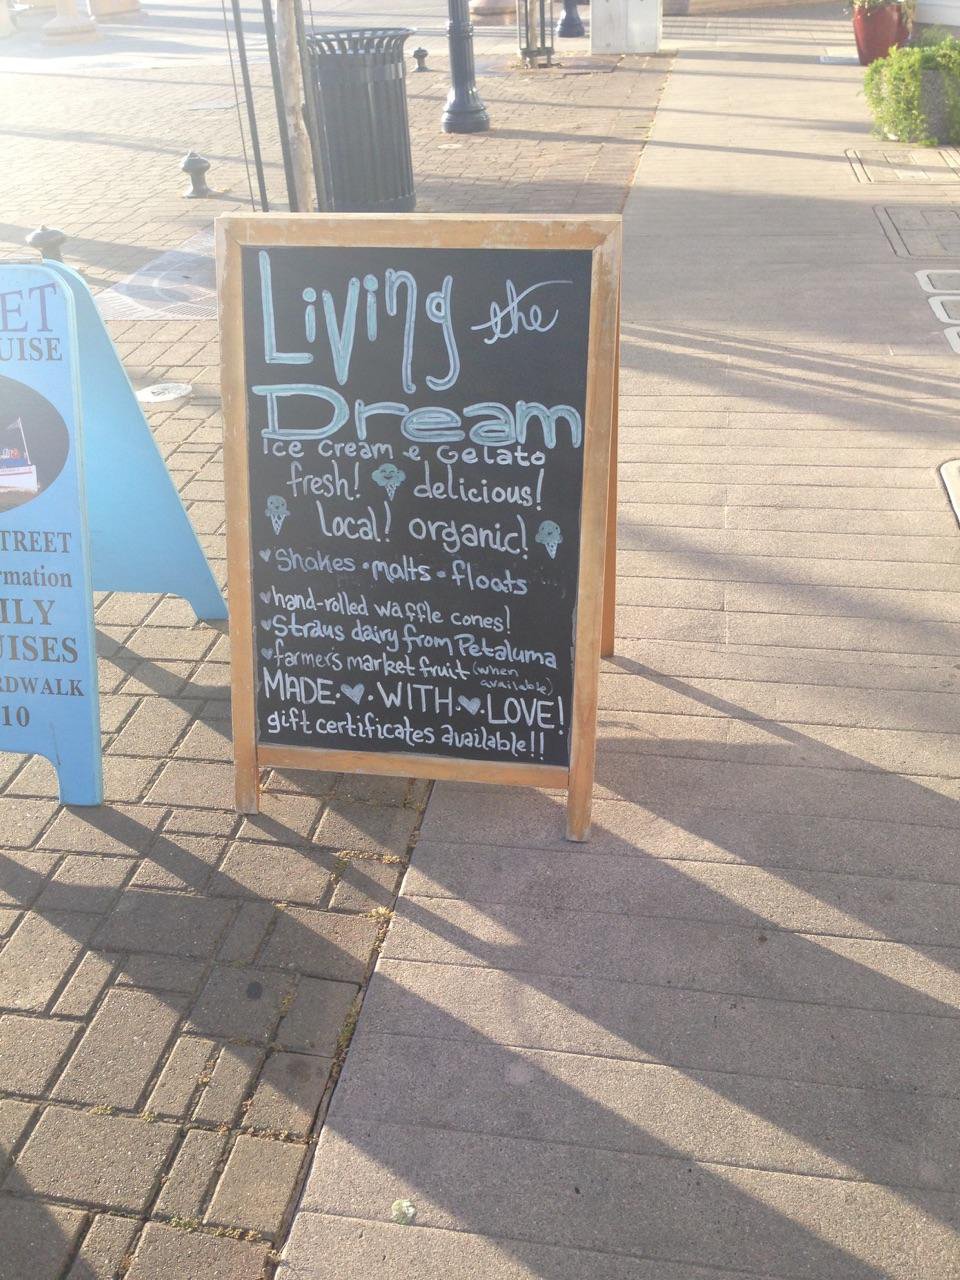 Living the
Dream
Ice Cream & Gelato
fresh! delicious!
local! organic!
shakes • malts • floats
hand-rolled waffle cones!
Straus dairy from Petaluma
farmer's market fruit (when available)
MADE • WITH • LOVE!
gift certificates available!!
ET
UISE
TREET
rmation
ILY
UISES
RDWALK
10